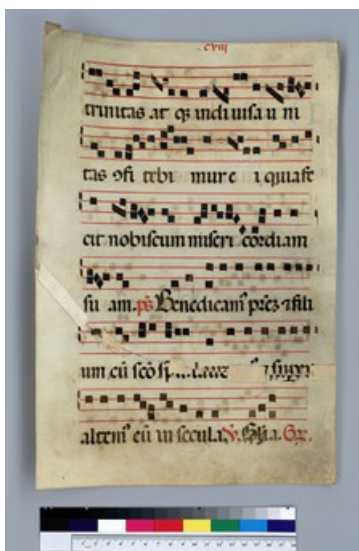 cviij
trinitas at q3 indi uisa u ni
tas ɔfi tebi mur e i quia fe
cit nobiscum miseri cordiam
su am. ps Benedicam' prez ⁊ fili
um cū scō
altem' eū in secula. V. Gl'a.